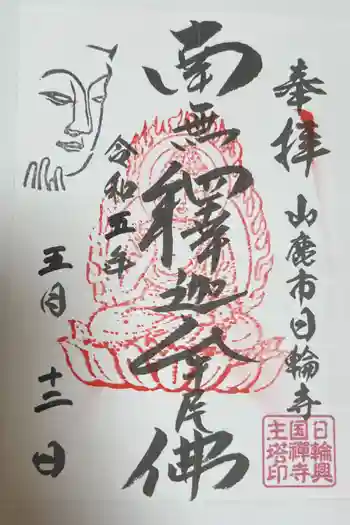 奉拝
山鹿市日輪寺
南無釋迦牟尼佛
令和五年
五月十二日
日輪興
国禅寺
主塔印